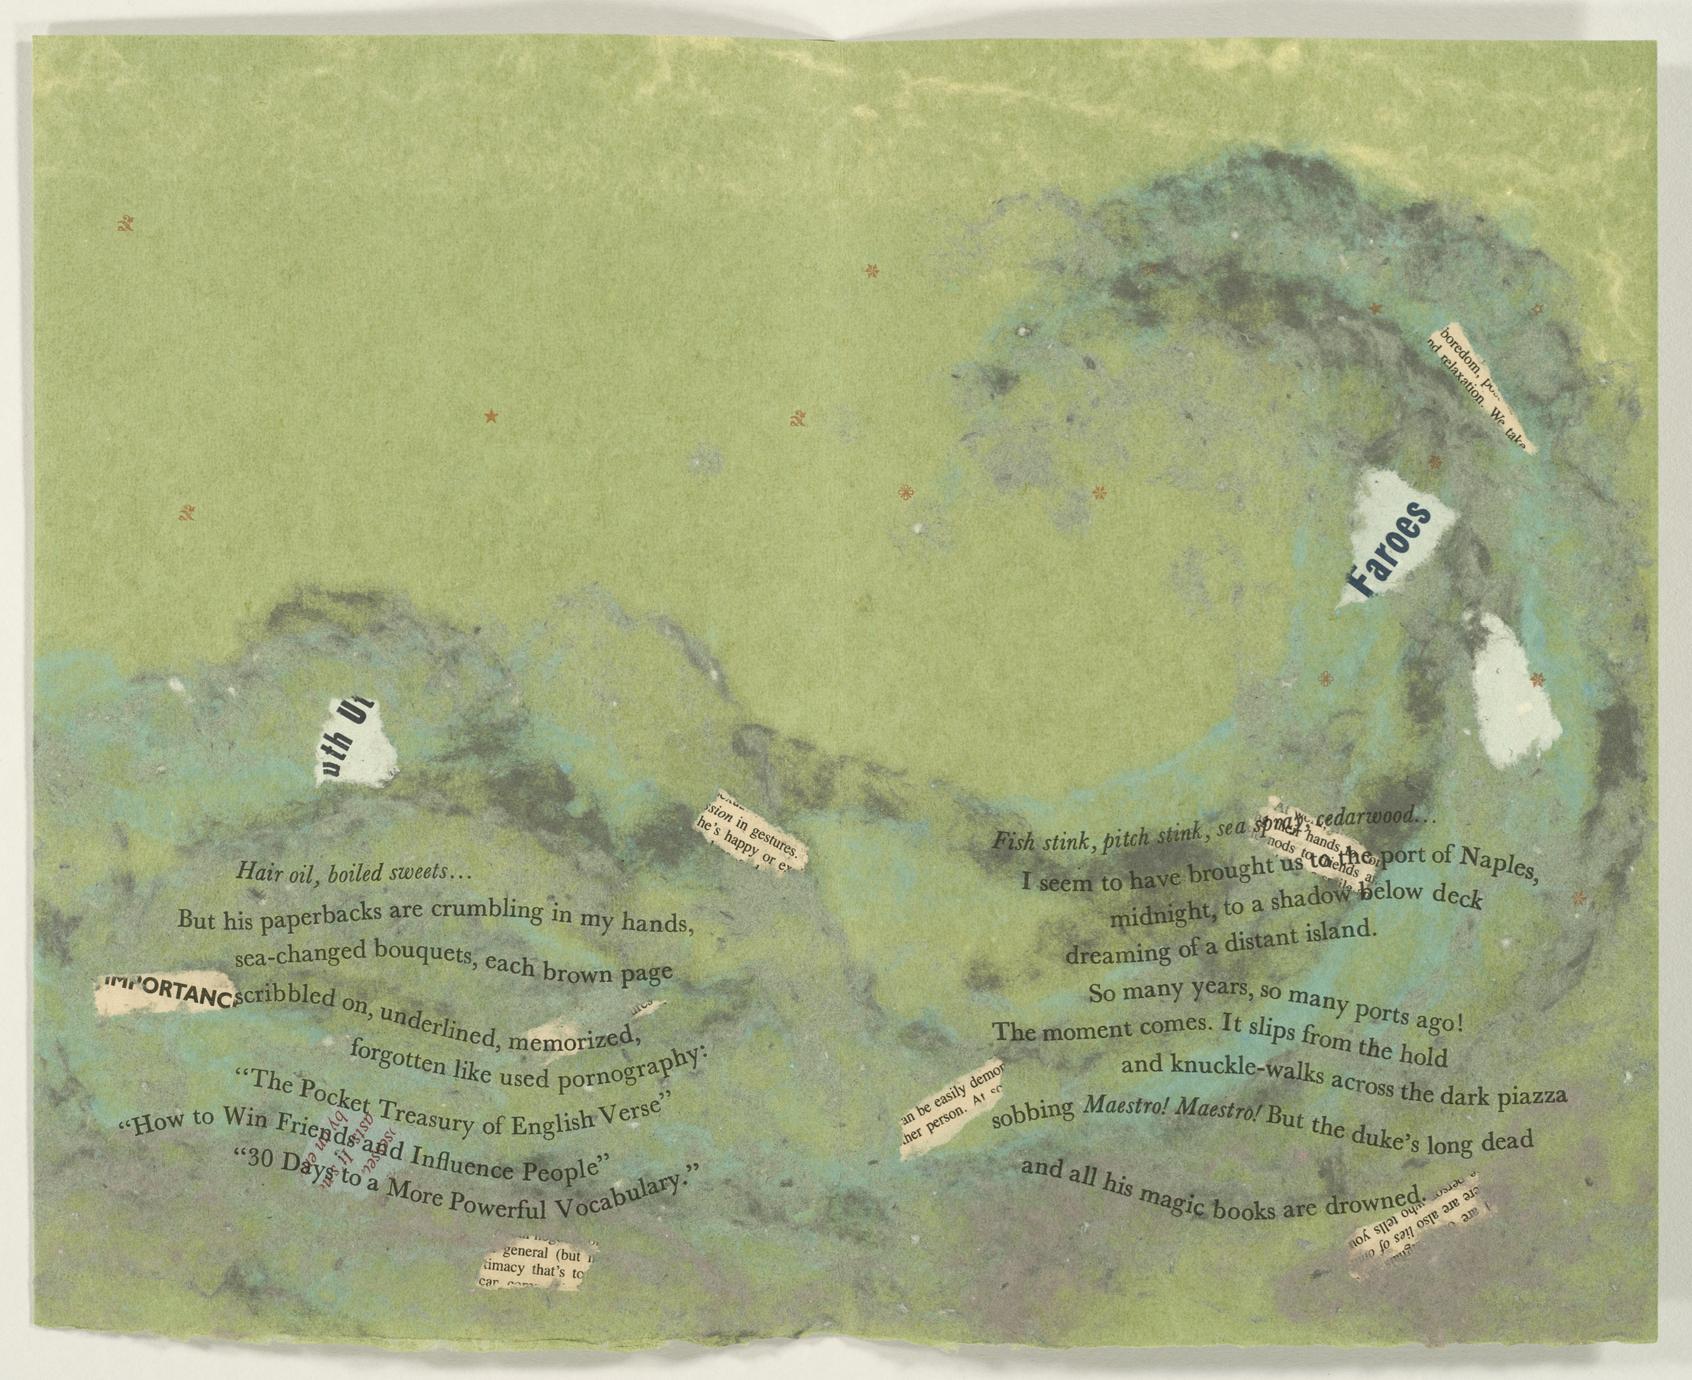 Hair oil, boiled sweets…
But his paperbacks are crumbling in my hands,
sea-changed bouquets, each brown page
scribbled on, underlined, memorized,
forgotten like used pornography:
“The Pocket Treasury of English Verse”
“How to Win Friends and Influence People”
“30 Days to a More Powerful Vocabulary.”
uth
IMPORTANC
sion in gestures.
he's happy or ex
general (but
timacy that's to
Fish stink, pitch stink, sea spray, cedarwood…
I seem to have brought us to the port of Naples,
midnight, to a shadow below deck
dreaming of a distant island.
So many years, so many ports ago!
The moment comes. It slips from the hold
and knuckle-walks across the dark piazza
sobbing Maestro! Maestro! But the duke's long dead
and all his magic books are drowned.
boredom,
nd relaxation. We take
Faroes
hands,
nods to friends
an be easily demon
her person. At
ere are also lies of
who tells you